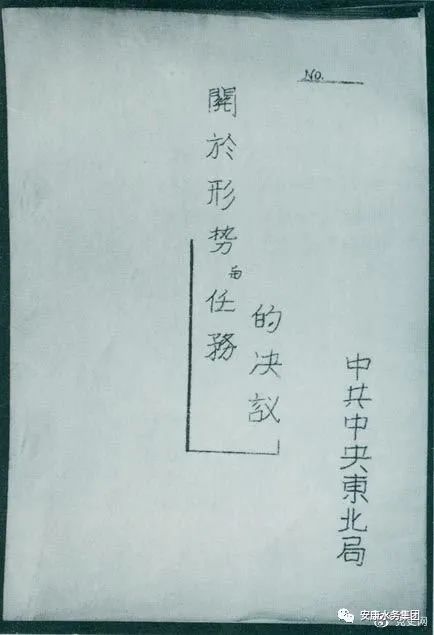 No.
關於形势与任務
的决议
中共中央東北局
安康水务集团
党史网